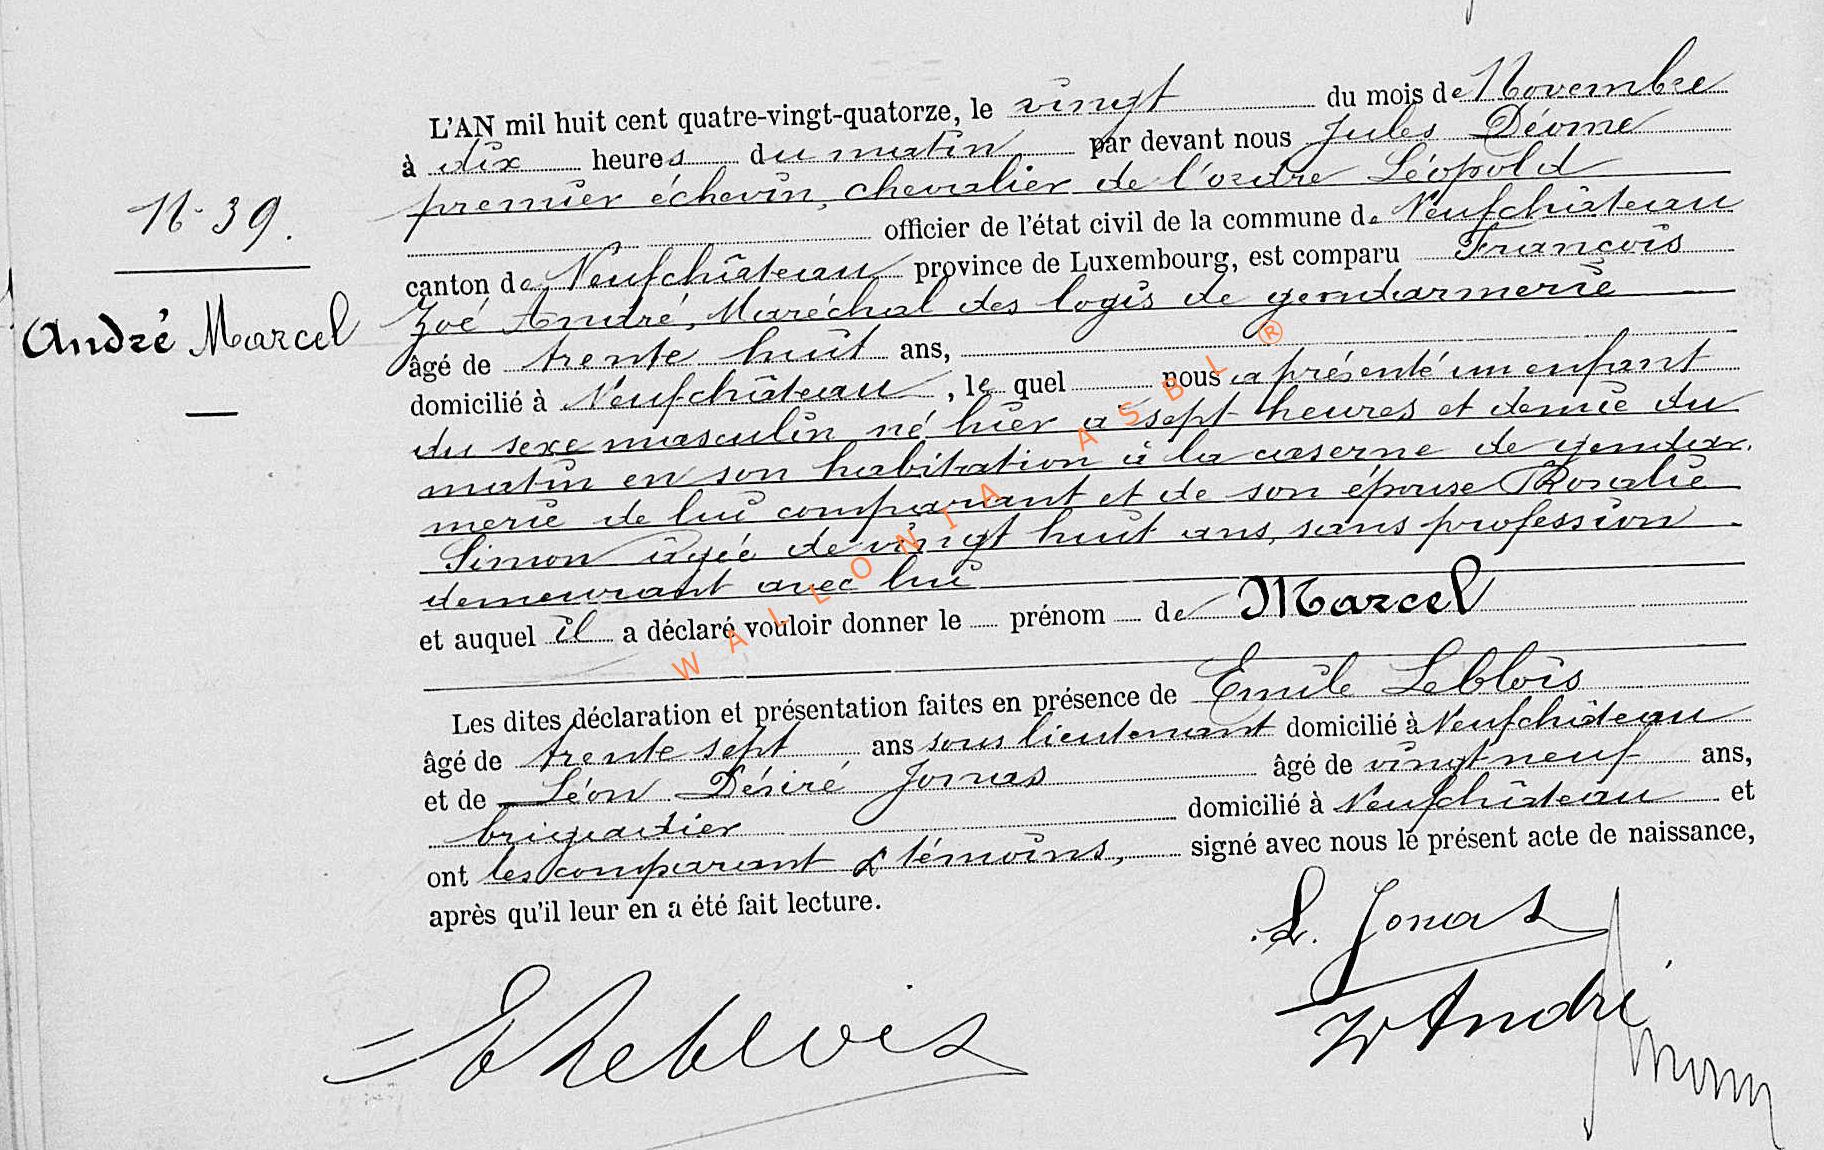 N° 39.
André Marcel
L'AN mil huit cent quatre-vingt-quatorze, le vingt du mois de Novembre
à dix heures du matin par devant nous Jules Déome
premier échevin, chevalier de l'ordre Léopold
officier de l'état civil de la commune de Neufchâteau
canton de Neufchâteau province de Luxembourg, est comparu François
Zoé André, Maréchal des logis de gendarmerie
âgé de trente huit ans,
domicilié à Neufchâteau, lequel nous a présenté un enfant
du sexe masculin né hier à sept heures et demie du
matin en son habitation à la caserne de gendar
merie de lui comparant et de son épouse Rosalie
Simon âgée de vingt huit ans, sans profession
demeurant avec lui
et auquel il a déclaré vouloir donner le prénom de Marcel
Les dites déclaration et présentation faites en présence de Emile Leblois
âgé de trente sept ans sous lieutenant domicilié à Neufchâteau
et de Léon Désiré Jonas âgé de vingt neuf ans,
brigadier domicilié à Neufchâteau et
ont les comparant & témoins, signé avec nous le présent acte de naissance,
après qu'il leur en a été fait lecture.
L. Jonas
E Leblois
André
WALLONIA ASBL ®